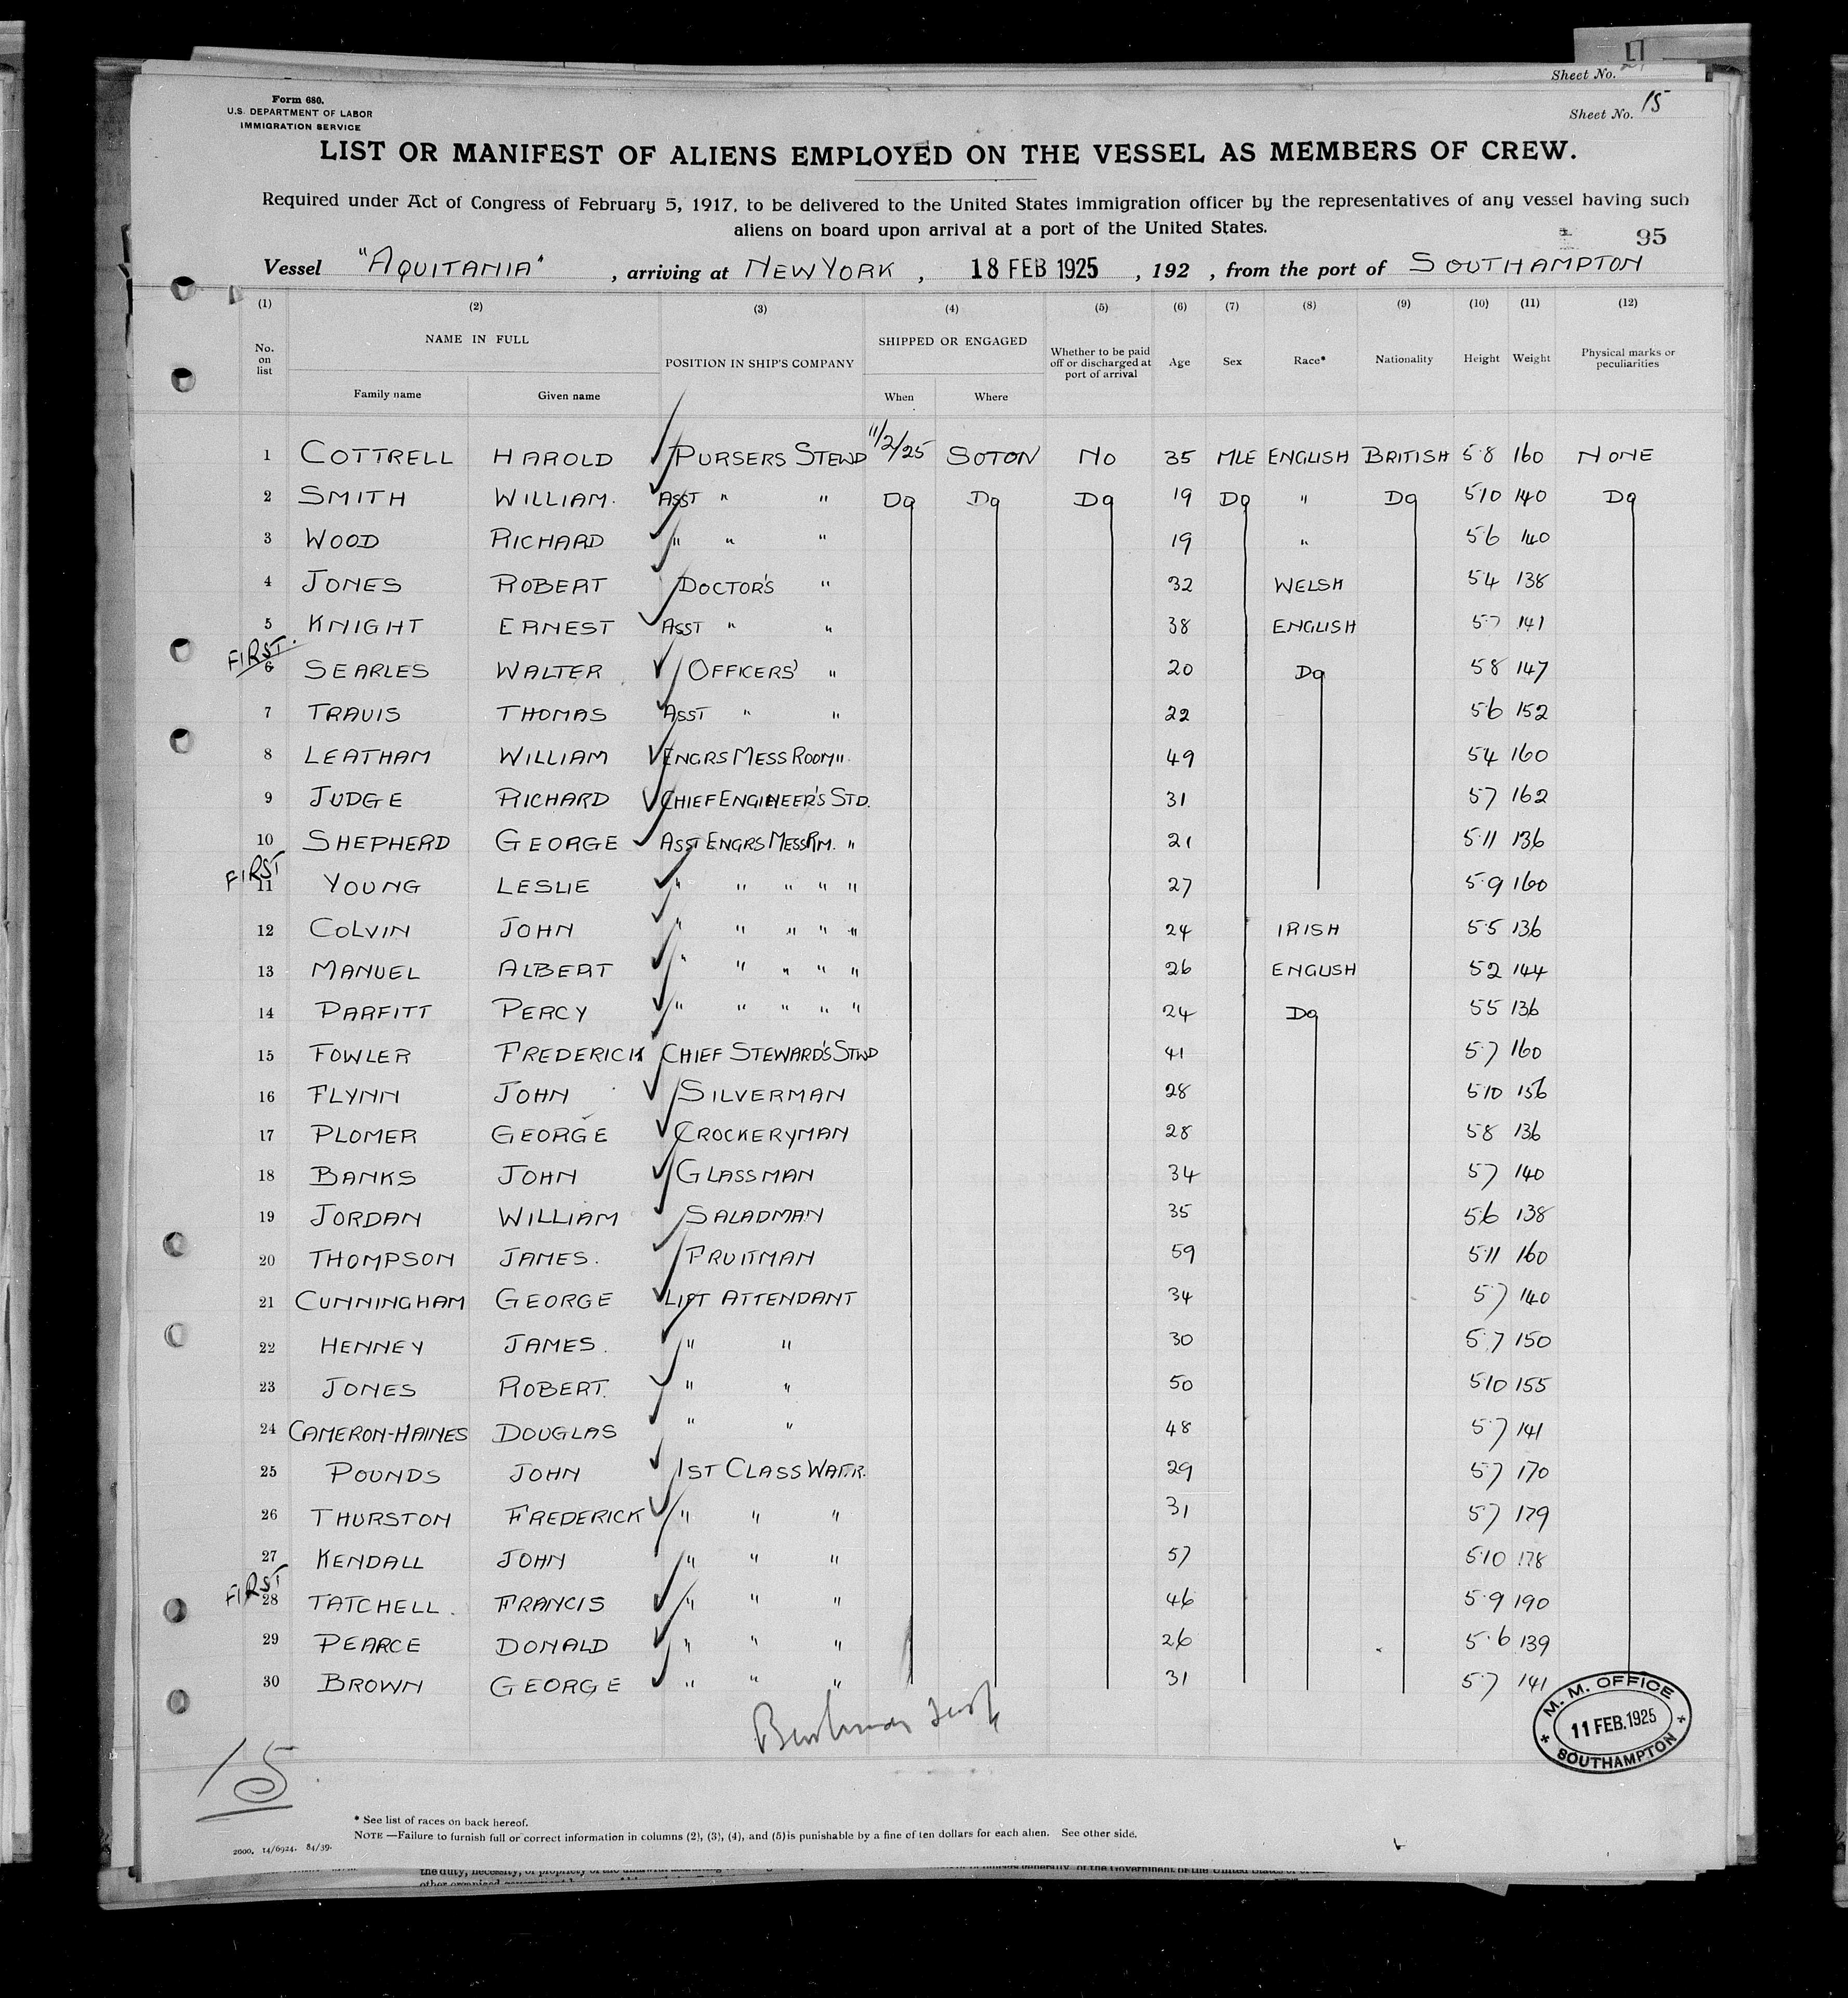 Sheet No. 21
Sheet No. 15
Form 680.
U.S. DEPARTMENT OF LABOR
IMMIGRATION SERVICE
LIST OR MANIFEST OF ALIENS EMPLOYED ON THE VESSEL AS MEMBERS OF CREW.
Required under Act of Congress of February 5, 1917, to be delivered to the United States immigration officer by the representatives of any vessel having such
aliens on board upon arrival at a port of the United States.
95
Vessel "AQUITANIA", arriving at NEW YORK, 18 FEB 1925, 192 , from the port of SOUTHAMPTON
(1) (2) (3) (4) (5) (6) (7) (8) (9) (10) (11) (12)
No. on list NAME IN FULL POSITION IN SHIP'S COMPANY SHIPPED OR ENGAGED Whether to be paid off or discharged at port of arrival Age Sex Race* Nationality Height Weight Physical marks or peculiarities
Family name Given name When Where
1 COTTRELL HAROLD PURSERS STEWD 11/2/25 SOTON NO 35 MLE ENGLISH BRITISH 5·8 160 NONE
2 SMITH WILLIAM. ASST " " Do Do Do 19 Do " Do 5·10 140 Do
3 WOOD RICHARD " " " 19 " 5·6 140
4 JONES ROBERT DOCTOR'S " 32 WELSH 5·4 138
5 KNIGHT ERNEST ASST " " 38 ENGLISH 5·7 141
FIRST.
6 SEARLES WALTER OFFICERS' " 20 Do 5·8 147
7 TRAVIS THOMAS ASST " " 22 5·6 152
8 LEATHAM WILLIAM ENGRS MESS ROOM " 49 5·4 160
9 JUDGE RICHARD CHIEF ENGINEER'S STD. 31 5·7 162
10 SHEPHERD GEORGE ASST ENGRS MESS RM. " 21 5·11 136
FIRST
11 YOUNG LESLIE " " " " " 27 5·9 160
12 COLVIN JOHN " " " " " 24 IRISH 5·5 136
13 MANUEL ALBERT " " " " " 26 ENGLISH 5·2 144
14 PARFITT PERCY " " " " " 24 Do 5·5 136
15 FOWLER FREDERICK CHIEF STEWARD'S STWD 41 5·7 160
16 FLYNN JOHN SILVERMAN 28 5·10 156
17 PLOMER GEORGE CROCKERYMAN 28 5·8 136
18 BANKS JOHN GLASSMAN 34 5·7 140
19 JORDAN WILLIAM SALADMAN 35 5·6 138
20 THOMPSON JAMES. FRUITMAN 59 5·11 160
21 CUNNINGHAM GEORGE LIFT ATTENDANT 34 5·7 140
22 HENNEY JAMES. " " 30 5·7 150
23 JONES ROBERT. " " 50 5·10 155
24 CAMERON-HAINES DOUGLAS " " 48 5·7 141
25 POUNDS JOHN 1ST CLASS WAITR. 29 5·7 170
26 THURSTON FREDERICK " " " 31 5·7 179
27 KENDALL JOHN " " " 57 5·10 178
FIRST
28 TATCHELL. FRANCIS " " " 46 5·9 190
29 PEARCE DONALD " " " 26 5·6 139
30 BROWN GEORGE " " " 31 5·7 141
M. M. OFFICE
11 FEB. 1925
SOUTHAMPTON
15
* See list of races on back hereof.
NOTE —Failure to furnish full or correct information in columns (2), (3), (4), and (5) is punishable by a fine of ten dollars for each alien. See other side.
2000. 14/6924. 84/39.